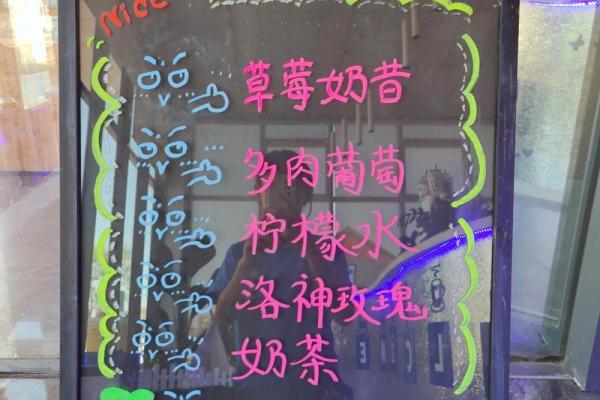 Nice
草莓奶昔
多肉葡萄
柠檬水
洛神玫瑰
奶茶